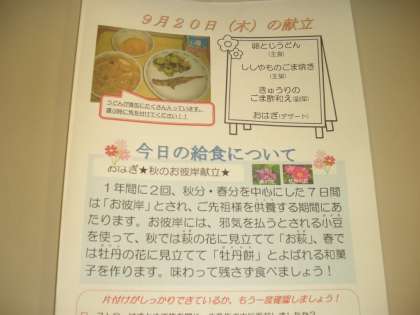 ９月２０日（木）の献立
卵とじうどん
（主食）
ししゃものごま焼き
（主菜）
きゅうりの
ごま酢和え（副菜）
おはぎ（デザート）
今日の給食について
おはぎ★秋のお彼岸献立★
１年間に２回、秋分・春分を中心にした７日間
は「お彼岸」とされ、ご先祖様を供養する期間にあ
たります。お彼岸には、邪気を払うとされる小豆
を使って、秋では萩の花に見立てて「お萩」、春で
は牡丹の花に見立てて「牡丹餅」とよばれる和菓
子を作ります。味わって残さず食べましょう！
片付けがしっかりできているか、もう一度確認しましょう！